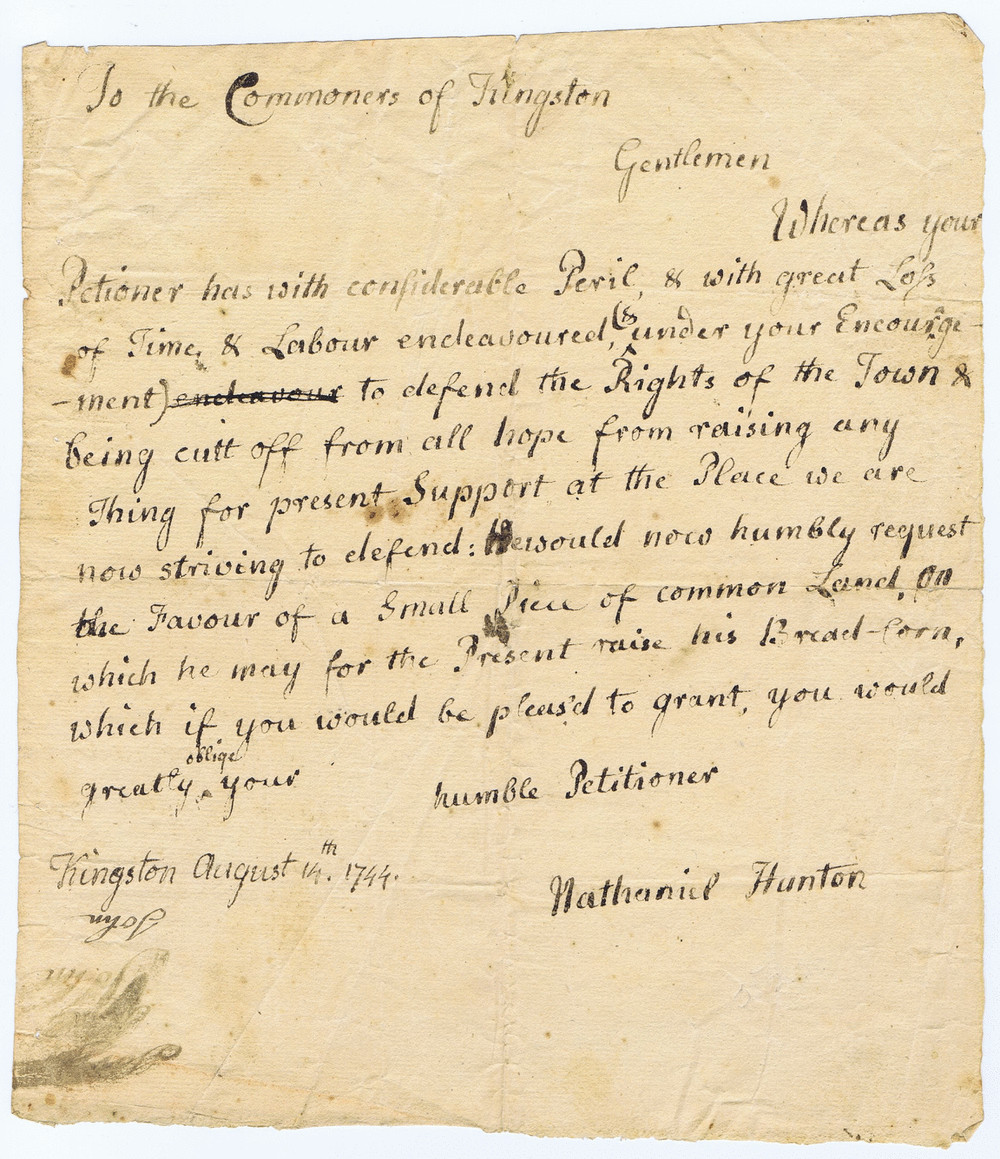 To the Commoners of Kingston
Gentlemen
Whereas your
Petioner has with considerable Peril, & with great Loss
of Time, & Labour endeavoured, (& under your Encourge-
-ment) endeavour to defend the Rights of the Town &
being cutt off from all hope from raising any
Thing for present Support at the Place we are
now striving to defend: He would now humbly request
the Favour of a Small Piece of common Land, on
which he may for the Present raise his Bread-Corn,
which if you would be pleas'd to grant, you would
greatly oblige your humble Petitioner
Kingston August 14th. 1744.
Nathaniel Hunton
John